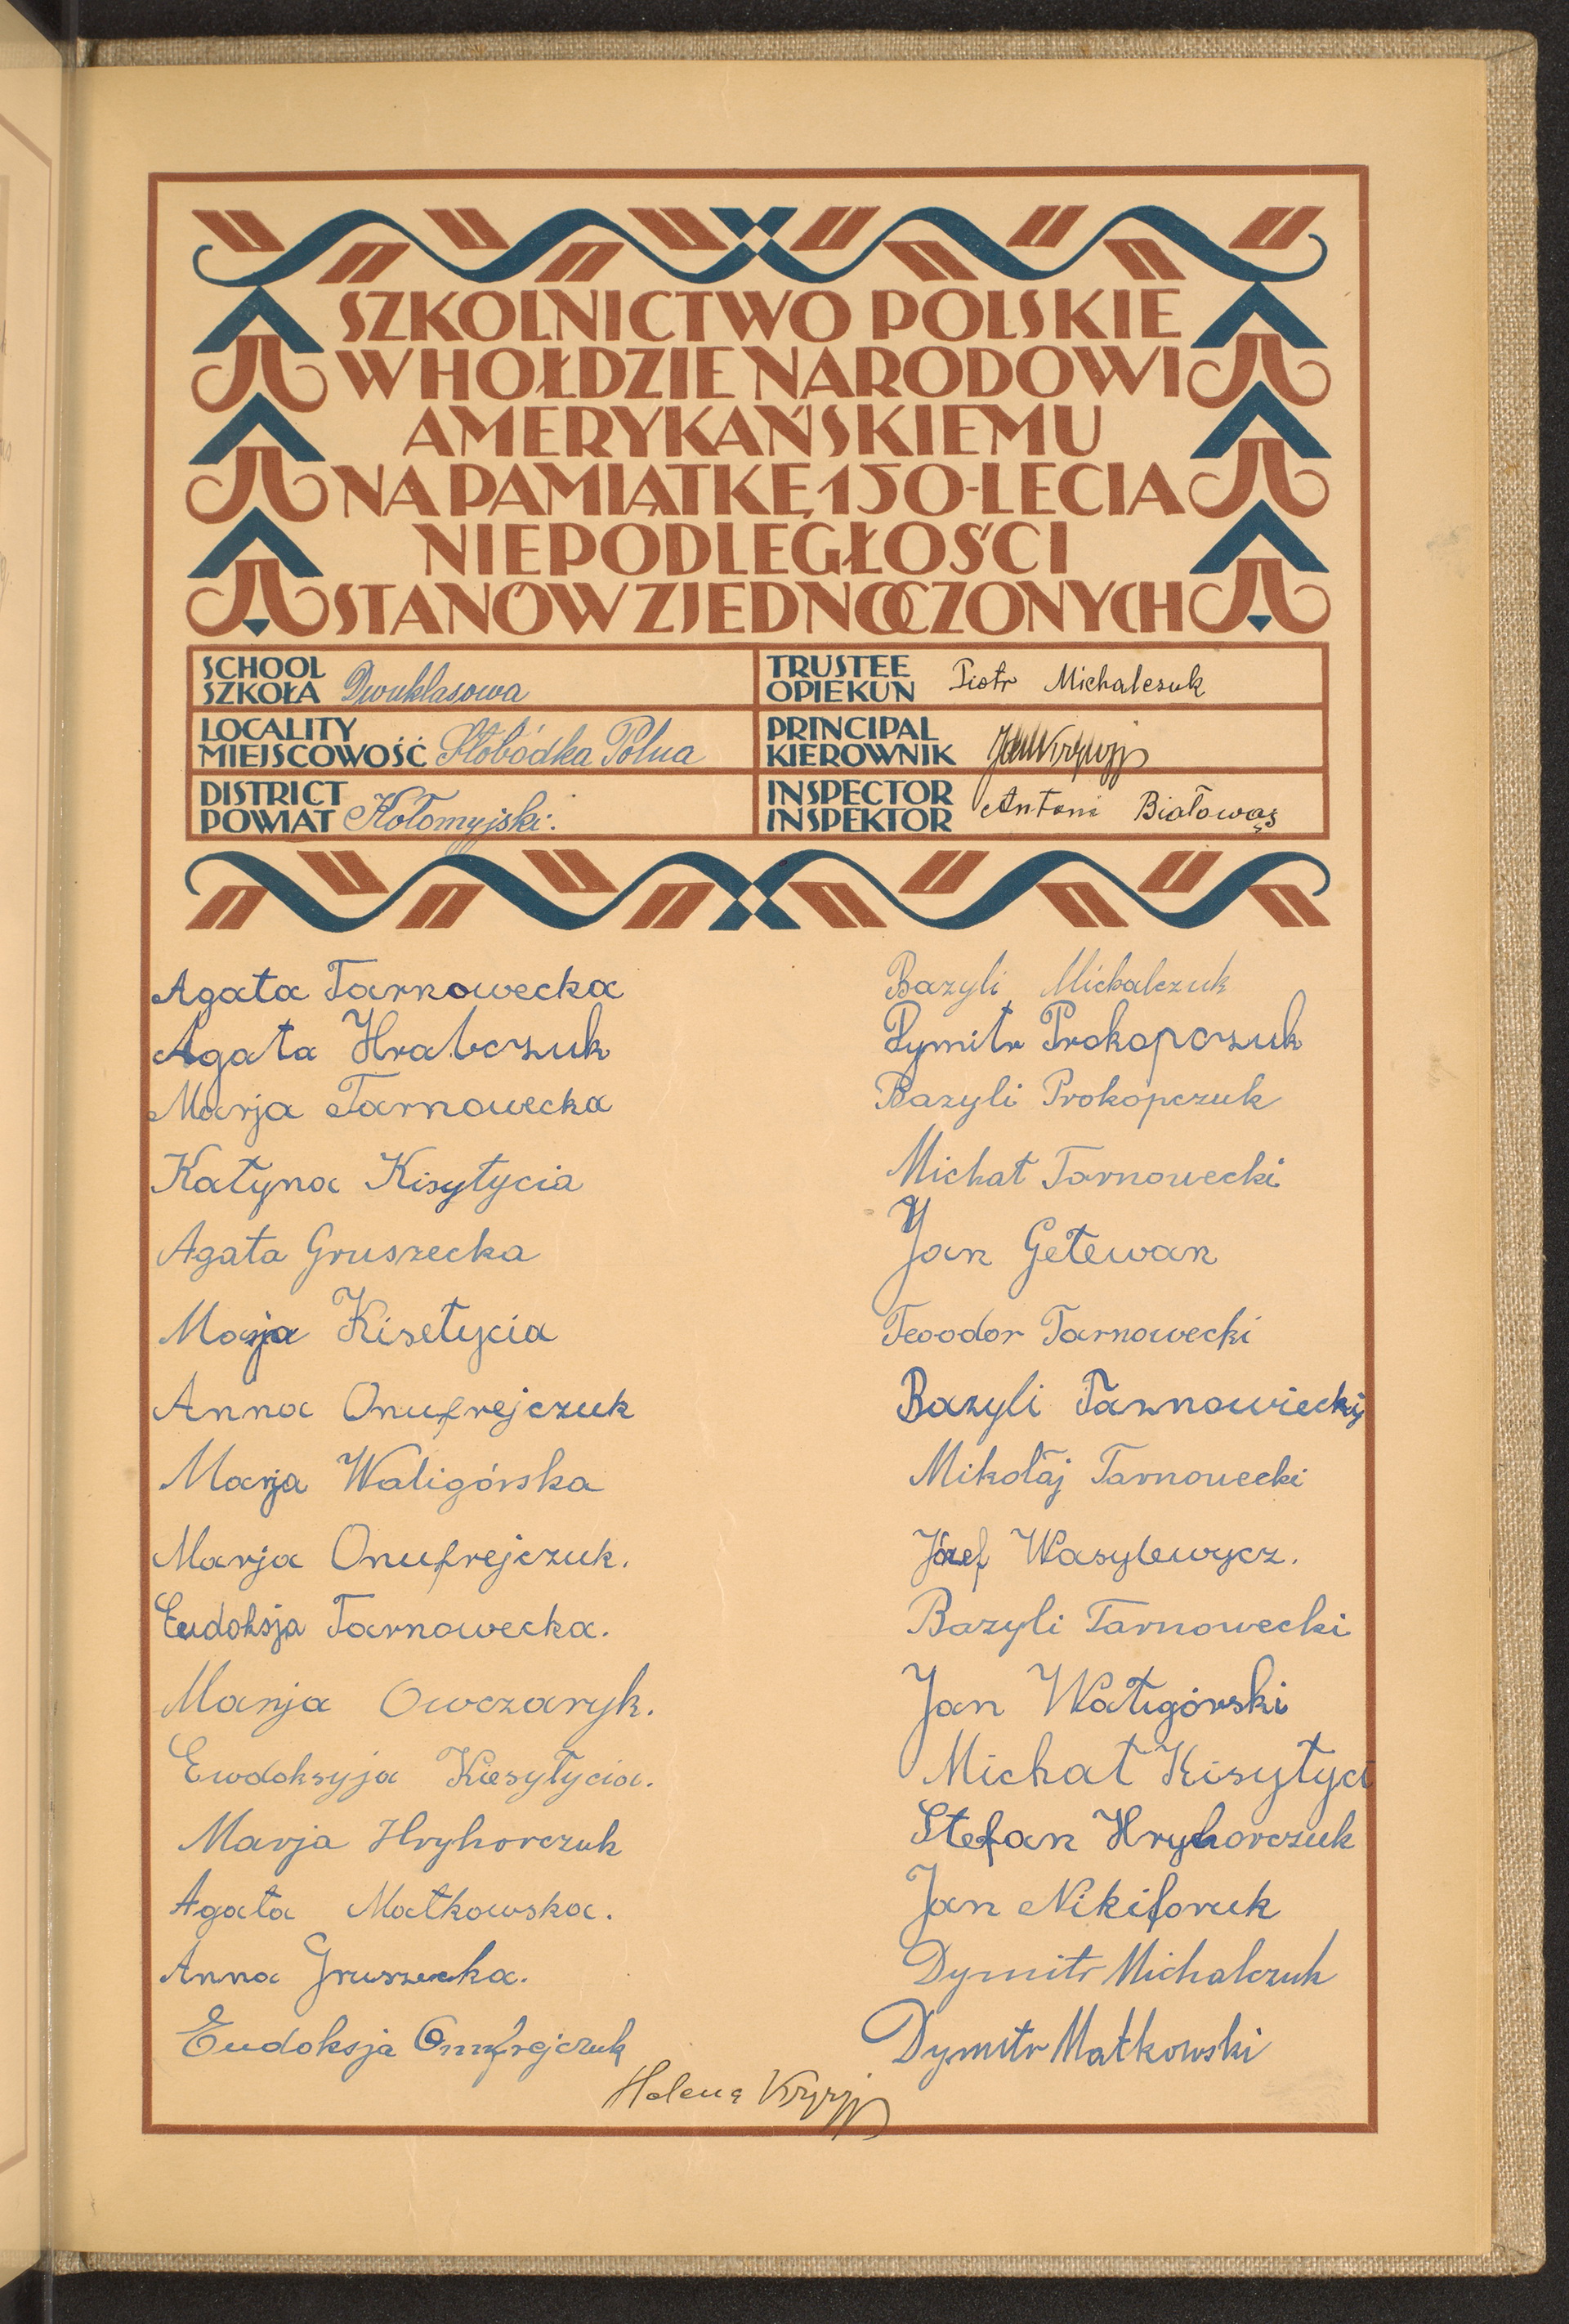 SZKOLNICTWO POLSKIE
W HOŁDZIE NARODOWI
AMERYKAŃSKIEMU
NA PAMIĄTKĘ 150-LECIA
NIEPODLEGŁOŚCI
STANÓW ZJEDNOCZONYCH
SCHOOL
SZKOŁA Dwuklasowa
LOCALITY
MIEJSCOWOŚĆ Słobódka Polna
DISTRICT
POWIAT Kołomyjski.
TRUSTEE
OPIEKUN Piotr Michalczuk
PRINCIPAL
KIEROWNIK
INSPECTOR
INSPEKTOR Antoni Białowąs
Agata Tarnowecka
Agata Hrabczuk
Marja Tarnowecka
Katyna Kisytycia
Agata Gruszecka
Marja Kisetycia
Anna Onufrejczuk
Marja Waligórska
Marja Onufrejczuk.
Eudoksja Tarnowecka.
Marja Owczaryk.
Ewdoksyja Kiesytycia.
Marja Hryhorczuk
Agata Matkowska.
Anna Gruszecka.
Eudoksja Onufrejczuk
Bazyli Michalczuk
Dymitr Prokopczuk
Bazyli Prokopczuk
Michał Tarnowecki
Jan Getewan
Teodor Tarnowecki
Bazyli Tarnowiecki
Mikołaj Tarnowecki
Józef Wasylewycz.
Bazyli Tarnowecki
Jan Waligórski
Michał Kisytyci
Stefan Hryhorczuk
Jan Nikiforuk
Dymitr Michalczuk
Dymitr Matkowski
Helena